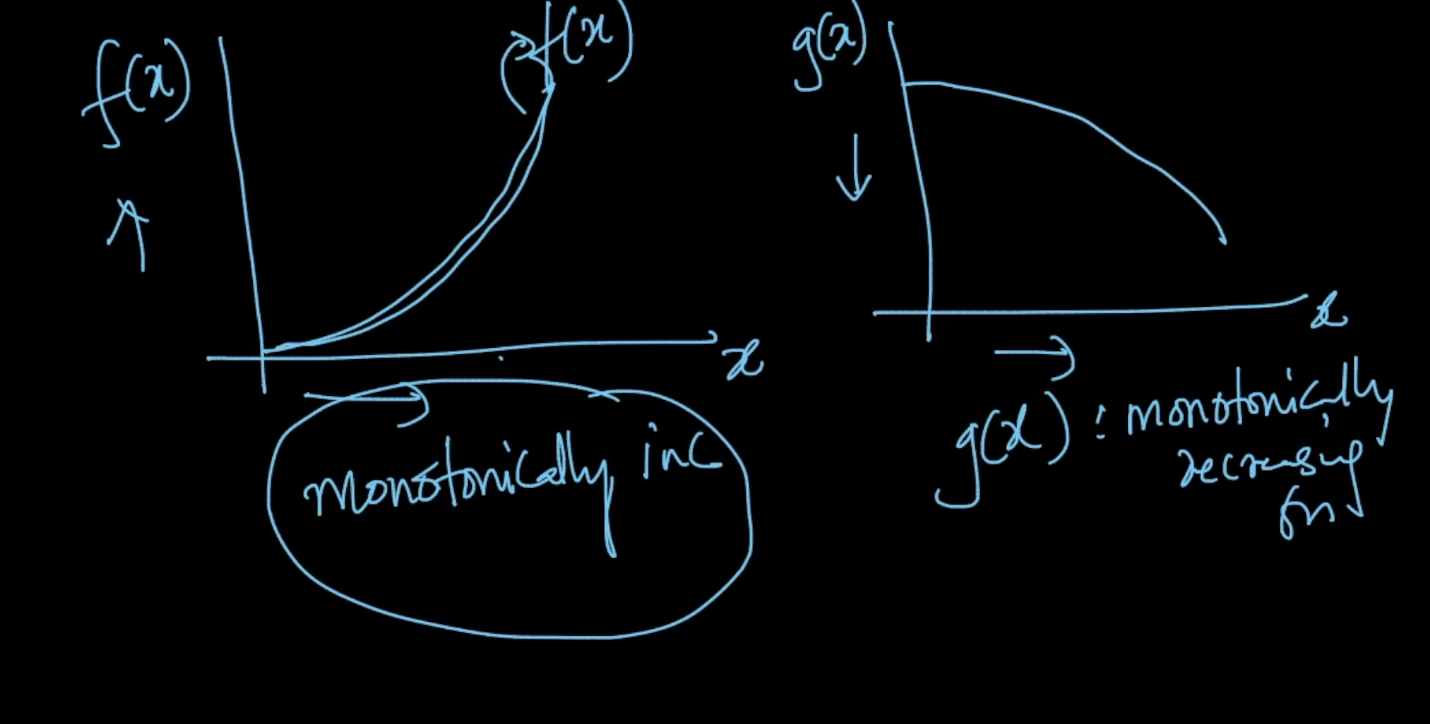 f(x)
f(x)
x
monotonically inc
g(x)
x
g(x) : monotonically
decreasing
fn